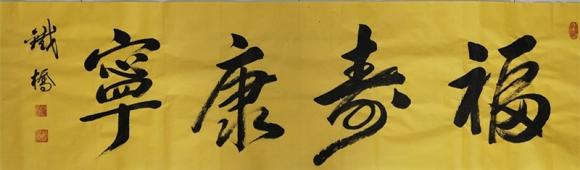 福寿康寧
鐵橋